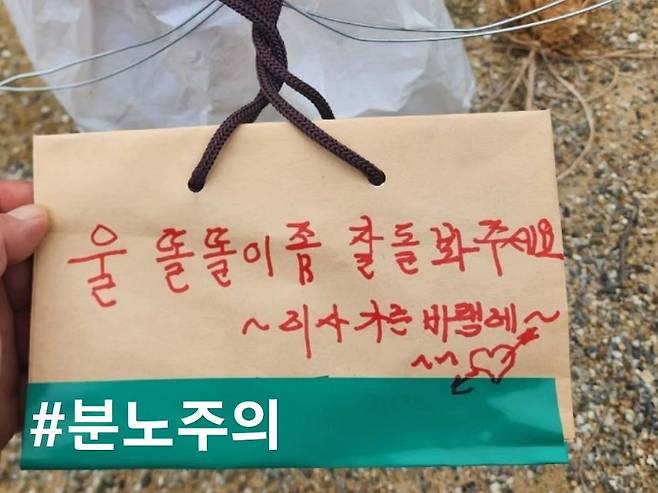 울 똘똘이좀 잘돌봐주세요
~리사 가는 바램에~
#분노주의